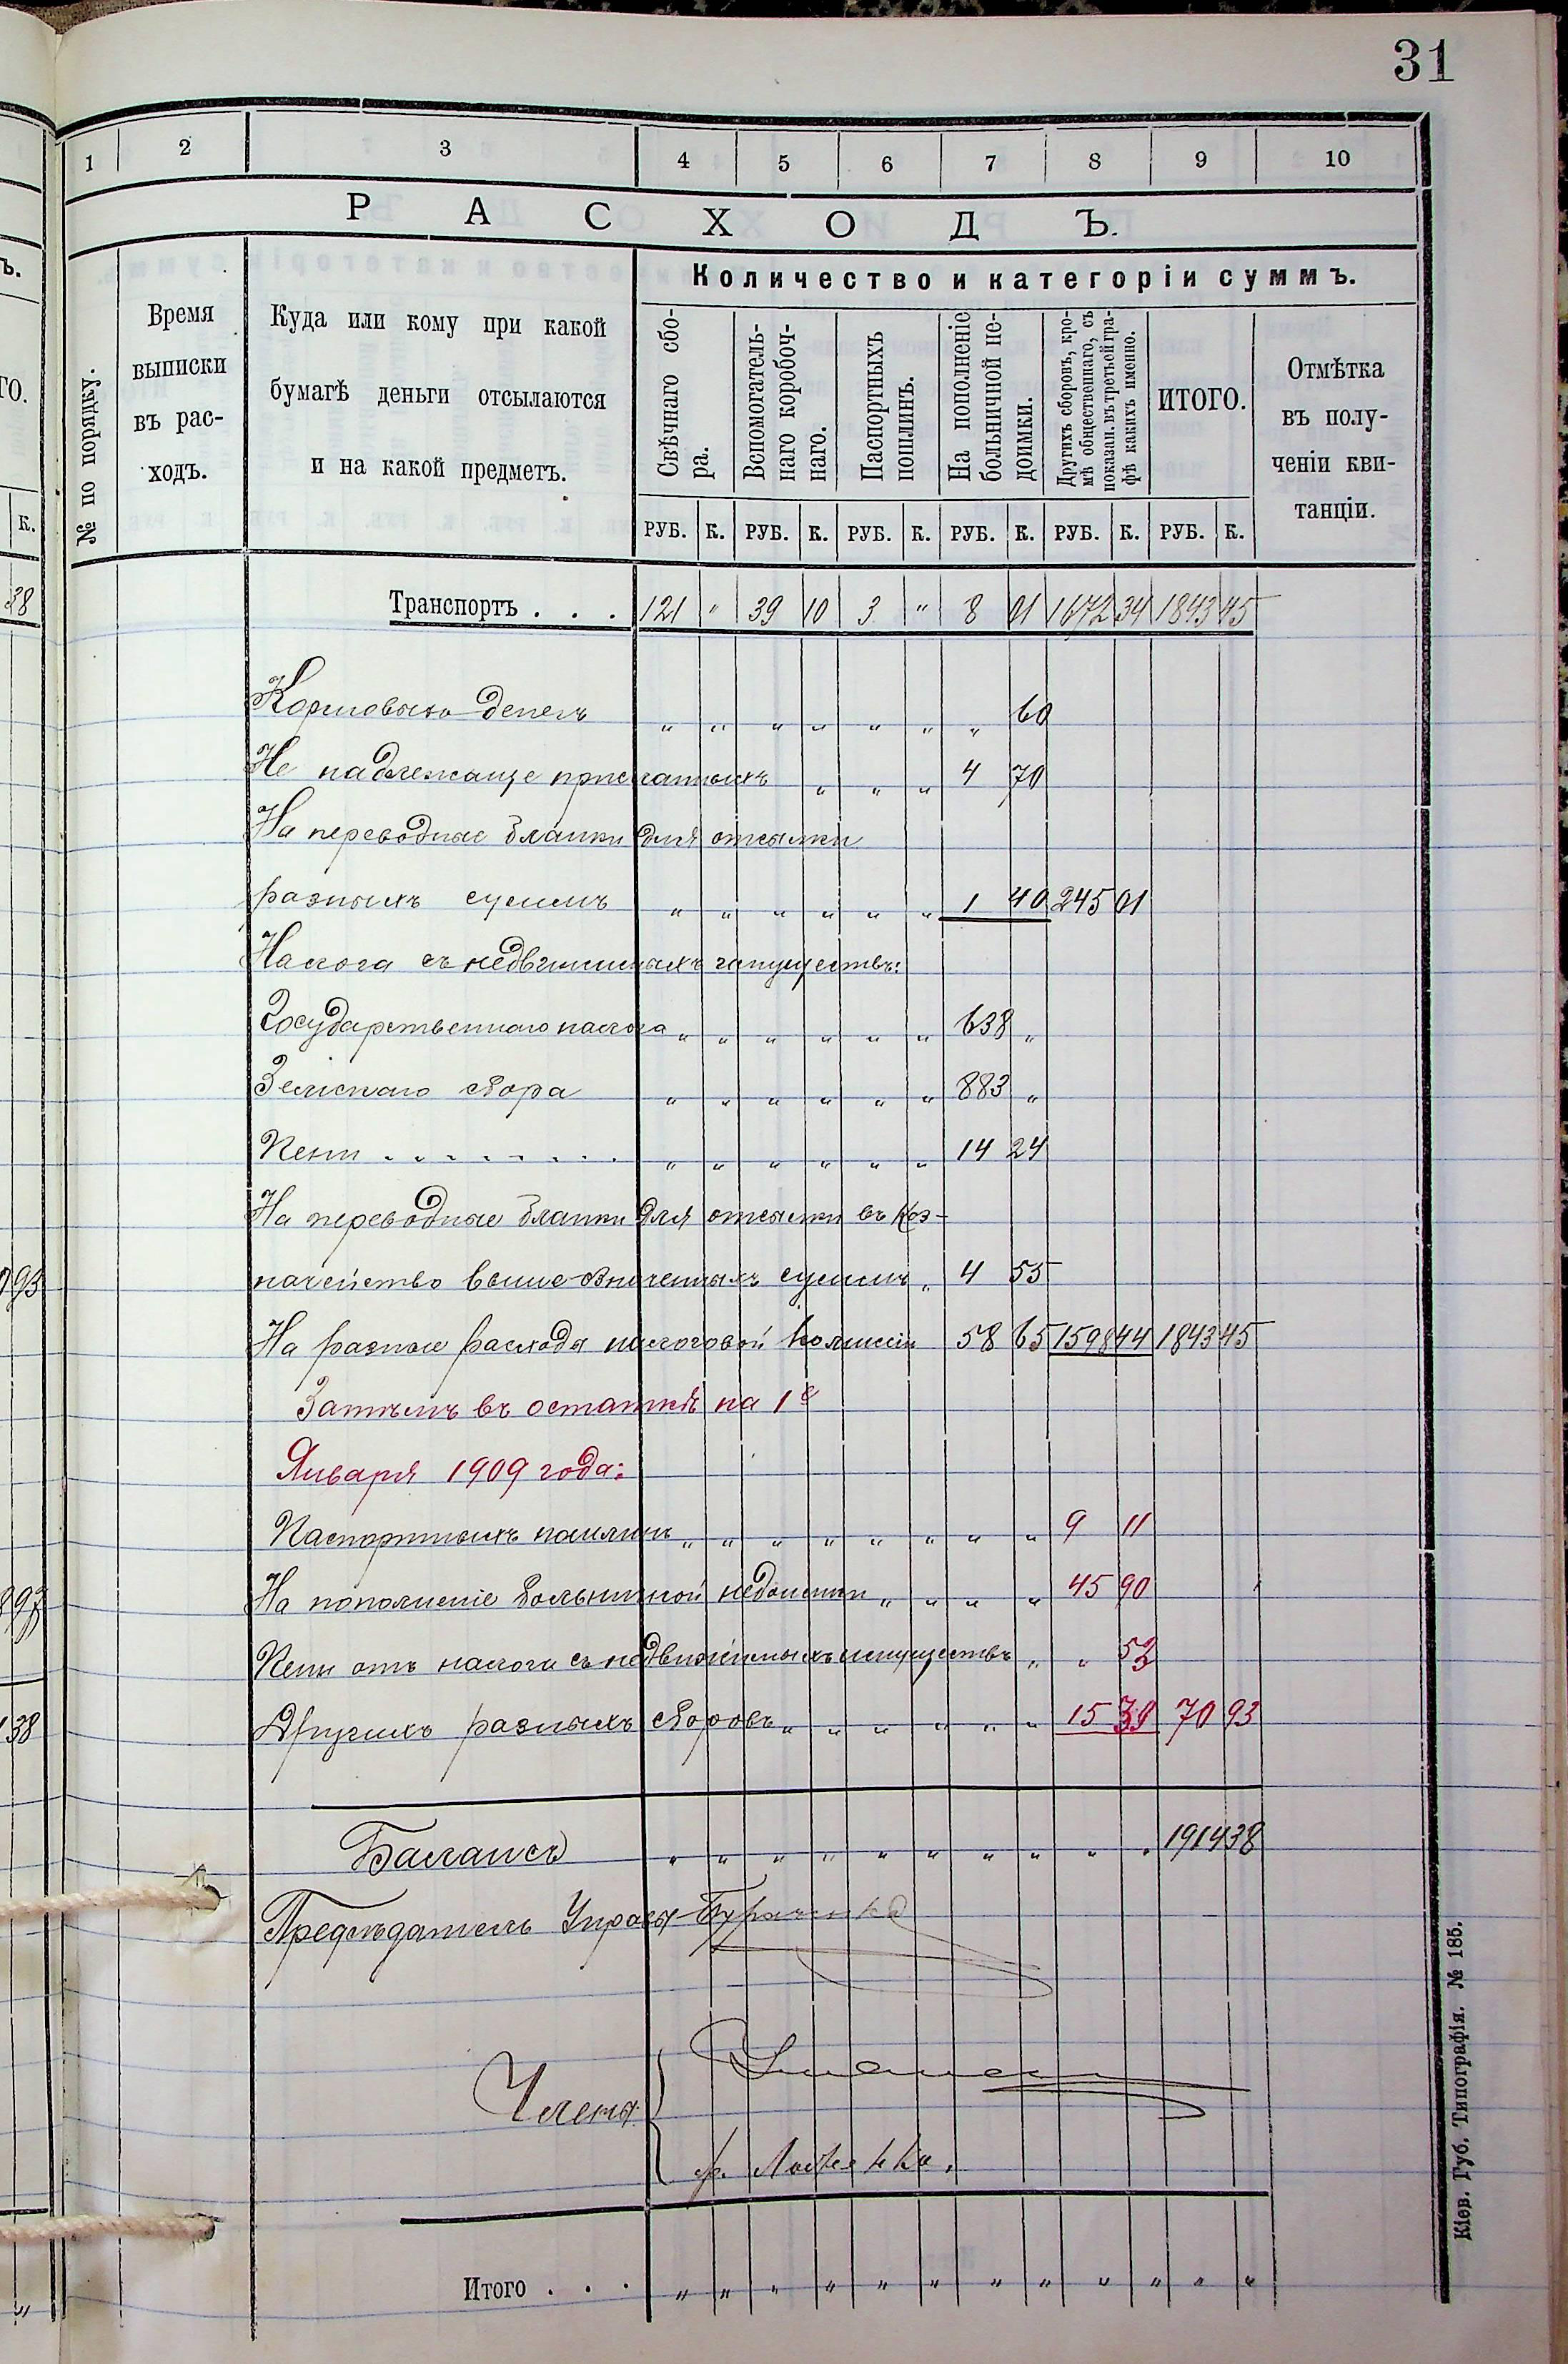 31
1 2 3 4 5 6 7 8 9 10
РАСХОДЪ.
№ по порядку.
Время выписки въ рас-ходъ.
Куда или кому при какой
бумагѣ деньги отсылаются
и на какой предметъ.
Количество и категоріи суммъ.
Свѣчнаго сбо-
ра.
Вспомогатель-
наго коробоч-
наго.
Паспортныхъ
пошлинъ.
На пополненіе
больничной не-
доимки.
Другихъ сборовъ, кро-
мѣ общественнаго, съ
показан. въ третьей гра-
фѣ какихъ именно.
ИТОГО.
Отмѣтка
въ полу-
ченіи кви-
танціи.
РУБ. К. РУБ. К. РУБ. К. РУБ. К. РУБ. К. РУБ. К.
Транспортъ . . . 121 " 39 10 3 " 8 01 1672 34 1843 45
Кормовыхъ денегъ " " " " " " " 60
Не надлежаще присланныхъ " " " 4 70
На переводные бланки для отсылки
разныхъ суммъ " " " " " " 1 40 245 01
Налога съ недвижимыхъ имуществъ:
Государственнаго налога " " " " " " 638 "
Земскаго сбора " " " " " " 883 "
Пени . . . . . . . . " " " " " " 14 24
На переводные бланки для отсылки въ Каз-
начейство вышеозначенныхъ суммъ " 4 55
На разные расходы налоговой комиссіи 58 65 1598 44 1843 45
Затѣмъ въ остаткѣ на 1е
Января 1909 года:
Паспортныхъ пошлинъ " " " " " " " " 9 11
На пополненіе больничной недоимки " " " " 45 90
Пени отъ налога съ недвижимыхъ имуществъ " " 53
Другихъ разныхъ сборовъ " " " " " " 15 39 70 93
Балансъ " " " " " " " " " " 1914 38
Предсѣдатель Управы
Члены:
Итого . . . " " " " " " " " " " " "
Кіев. Губ. Типографія. № 185.